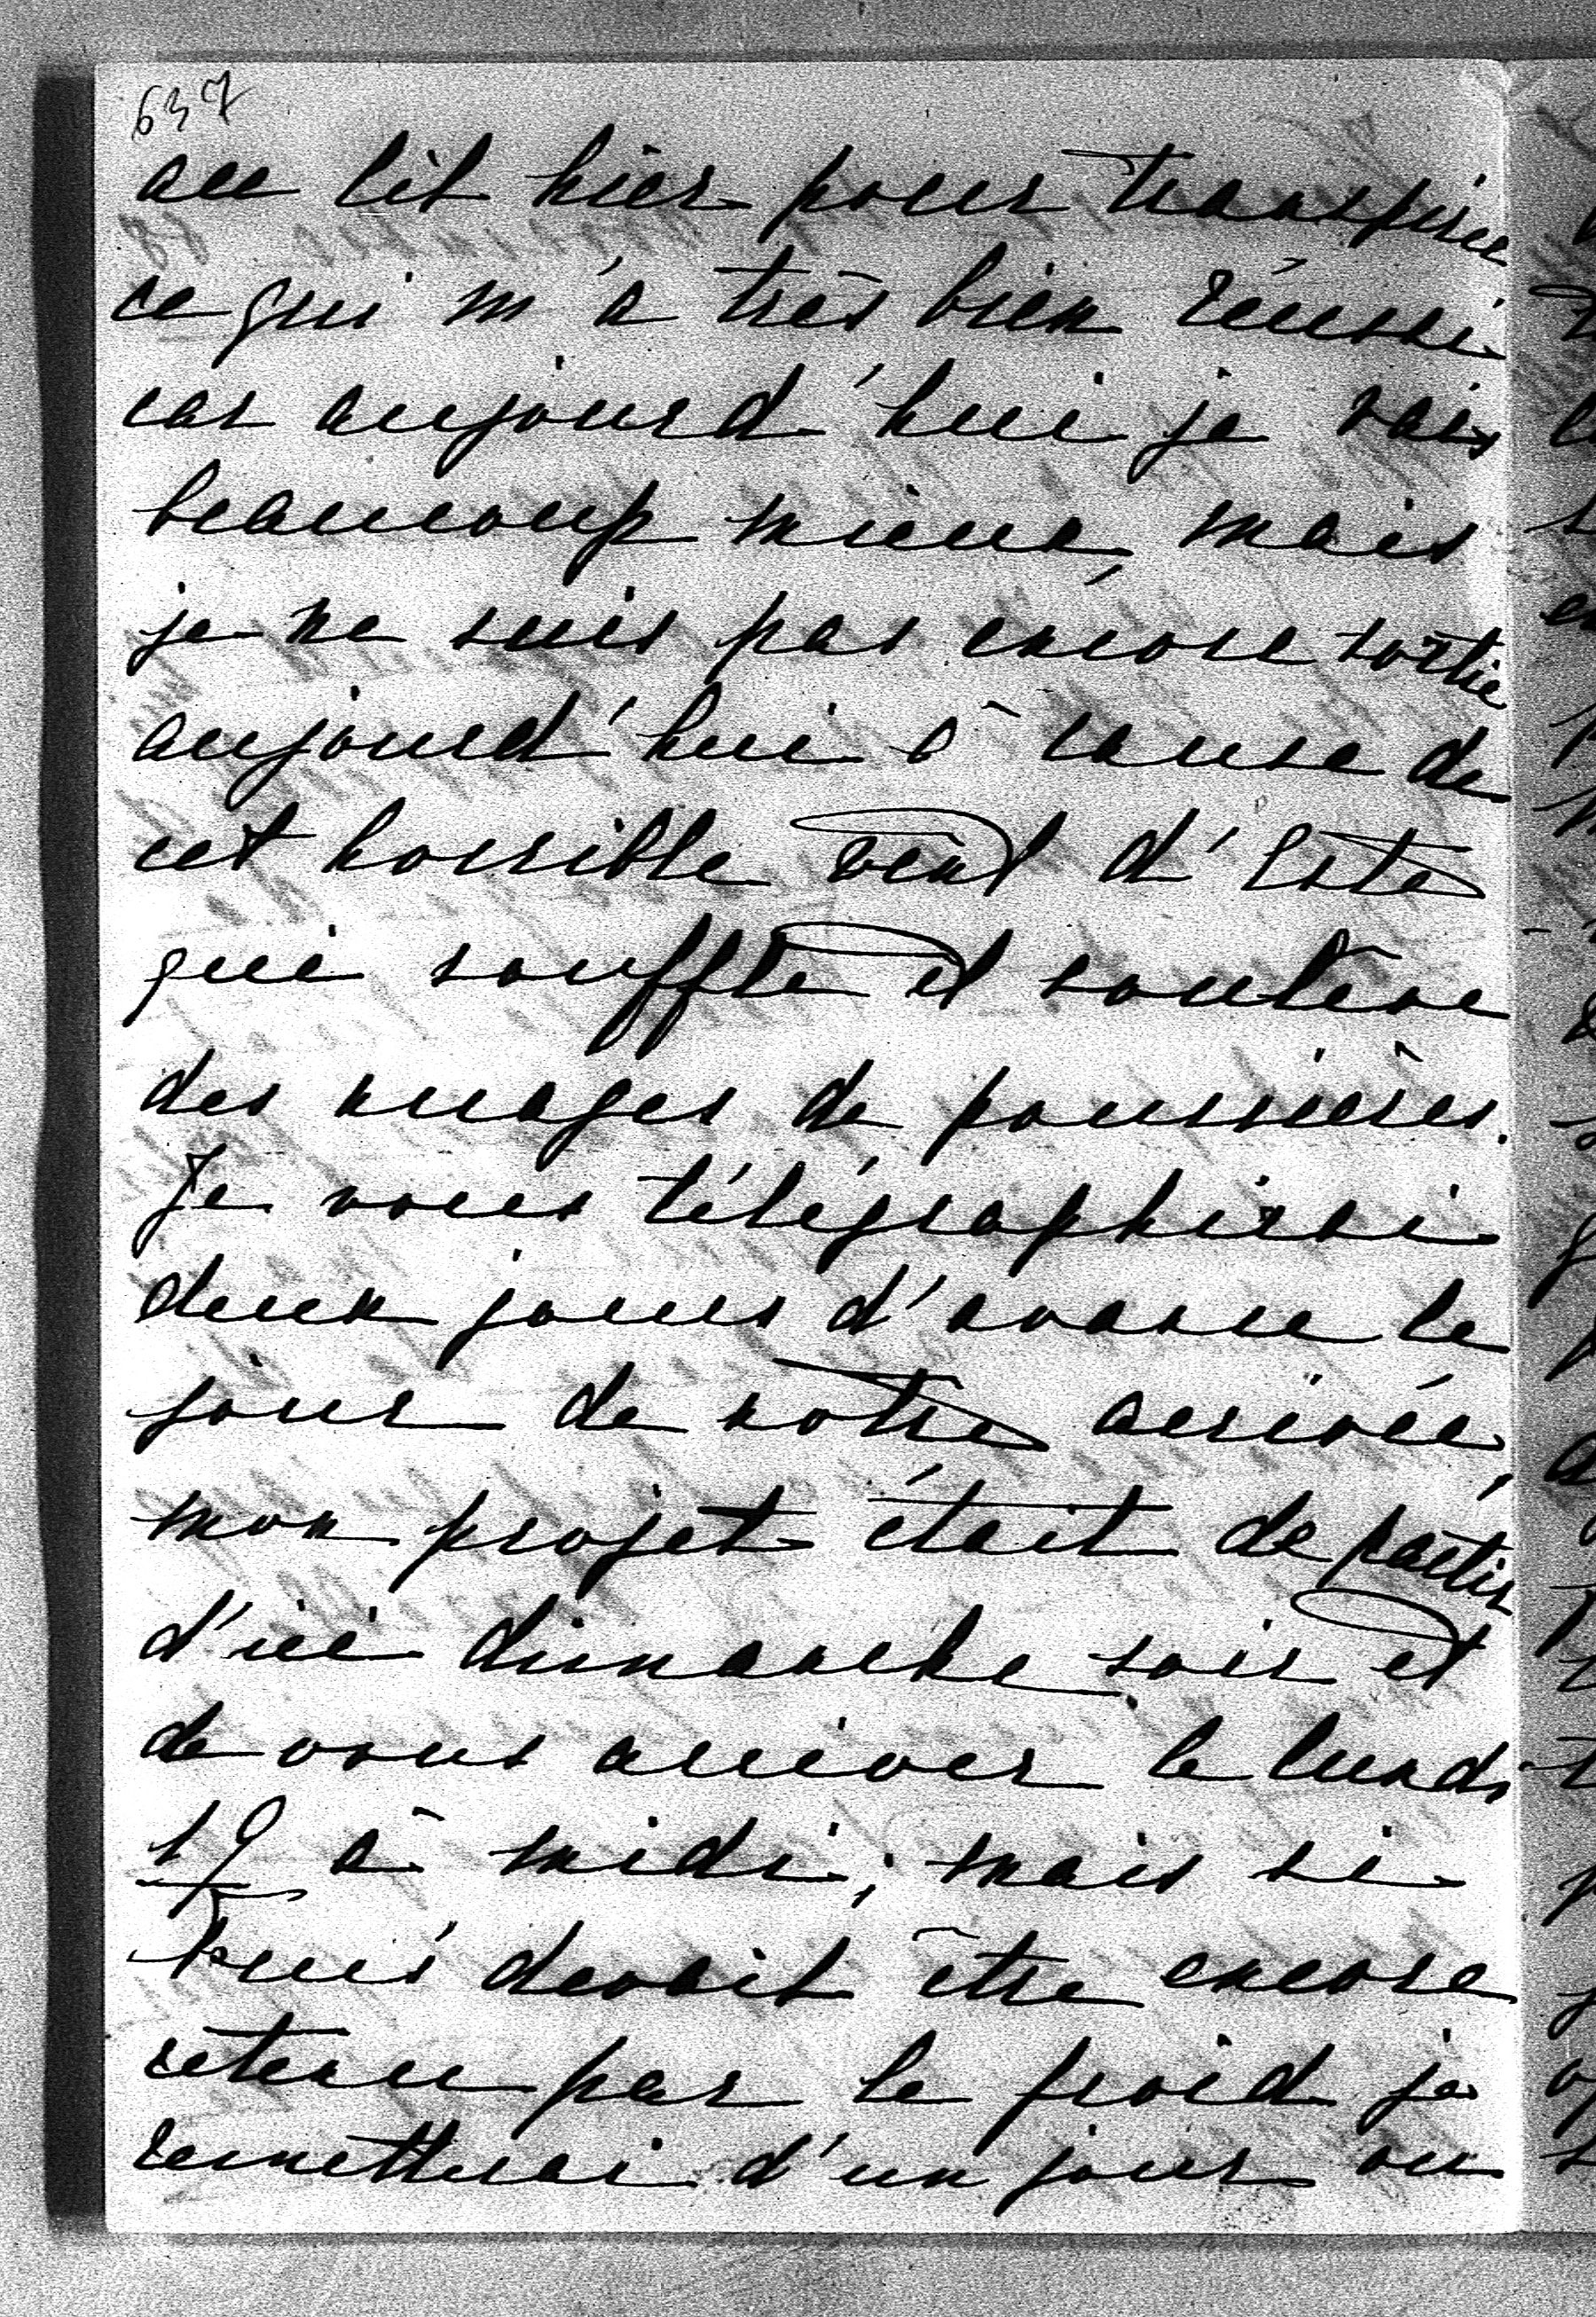 637
au lit hier pour transpirer
ce qui m'a très bien réussi
car aujourd'hui je vais
beaucoup mieux, mais
je ne suis pas encore sortie
aujourd'hui à cause de
cet horrible vent d'Este
qui souffle et soulève
des nuages de poussières.
Je vous télégraphierai
deux jours d'avance le
jour de notre arrivée,
mon projet était de partir
d'ici dimanche soir et
de vous arriver le lundi
19 à midi; mais si
devait être encore
retenu par le froid je
remettrai d'un jour ou